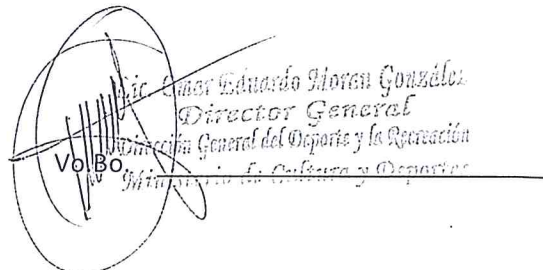 Lic. Omar Eduardo Moran González
Director General
Dirección General del Deporte y la Recreación
Vo.Bo.
Ministerio de Cultura y Deportes